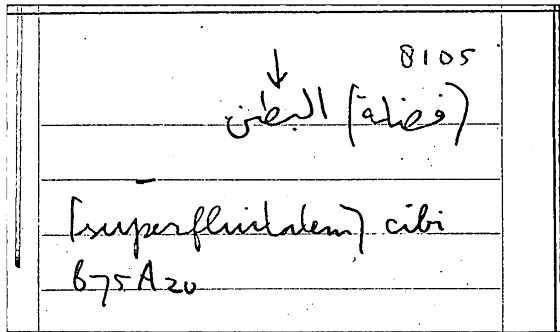 8105
(فضلة) البطن
[superfluitatem] cibi
675A20